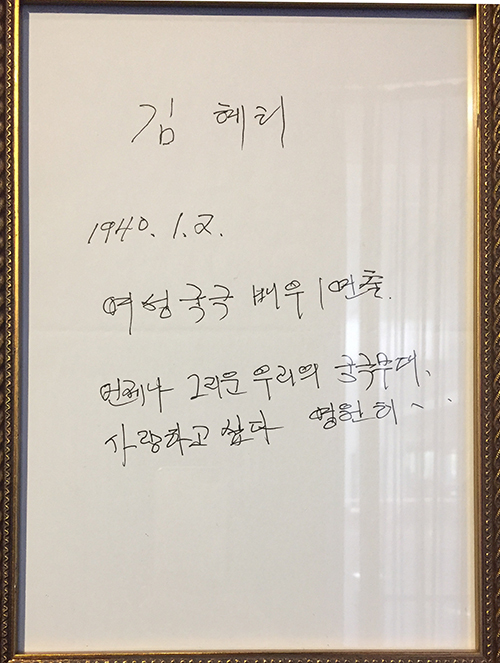 김 혜리
1940. 1. 2.
여성국극 배우 / 연출.
언제나 그리운 우리의 국극무대,
사랑하고 싶다 영원히~..